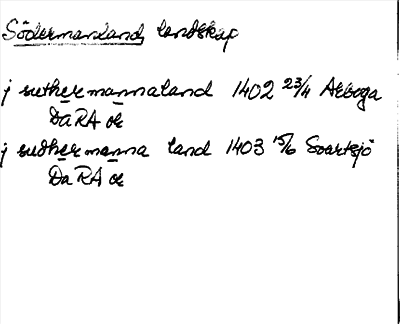 Södermanland, landskap
j suthermannaland 1402 23/4 Arboga
DaRA or
j sudhermanna land 1403 15/6 Svartsjö
DaRA or